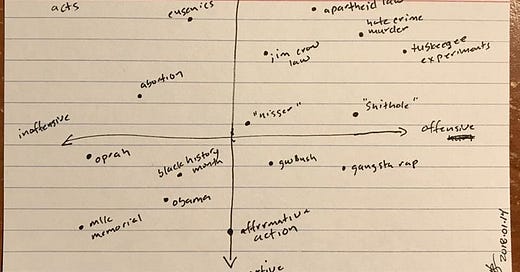 acts
eugenics
apartheid law
hate crime
murder
tuskeegee
experiments
jim crow
law
abortion
"nigger"
"shithole"
inoffensive
offensive
oprah
black history
month
gwbush
gangsta rap
obama
mlk
memorial
affirmative
action
2018-01-14